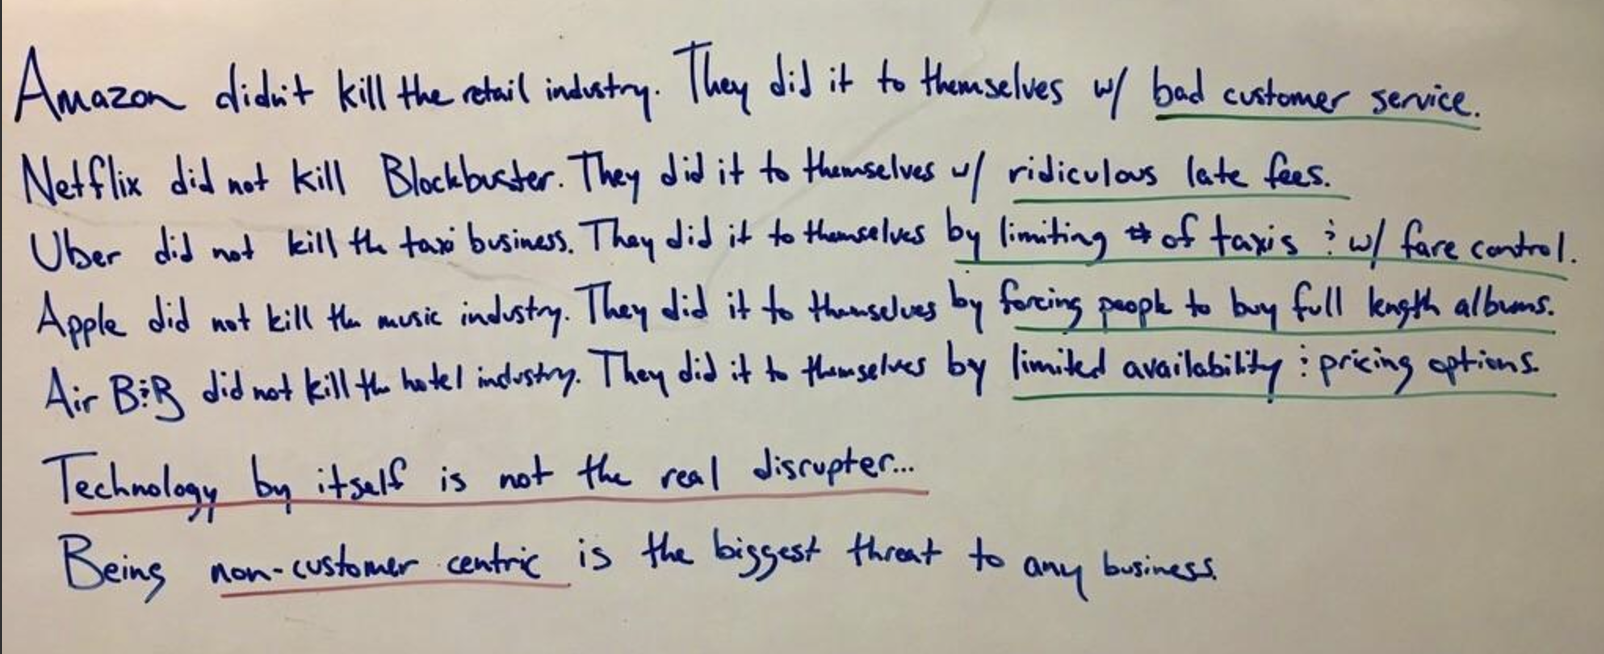 Amazon didn't kill the retail industry. They did it to themselves w/ bad customer service.
Netflix did not kill Blockbuster. They did it to themselves w/ ridiculous late fees.
Uber did not kill the taxi business. They did it to themselves by limiting # of taxis & w/ fare control.
Apple did not kill the music industry. They did it to themselves by forcing people to buy full length albums.
Air B&B did not kill the hotel industry. They did it to themselves by limited availability & pricing options.
Technology by itself is not the real disrupter...
Being non-customer centric is the biggest threat to any business.